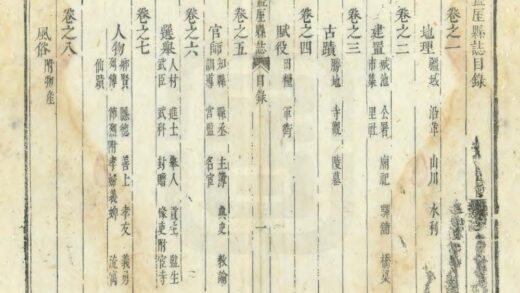 盩厔縣誌目錄
卷之一
地理 疆域 沿革 山川 水利
卷之二
建置 城池 公署 廟祀 驛舖 橋梁
市集 里社
卷之三
古蹟 勝地 寺觀 陵墓
卷之四
賦役 田糧 軍衛
目錄
一
卷之五
官師 知縣 縣丞 主簿 典史 教諭
訓導 宦蹟 名宦
卷之六
選舉 人材 進士 舉人 貢生 監生
武臣 武科 封贈 掾吏附
卷之七
人物 鄉賢 隱德 善士 孝友 義勇
列傳 節烈附孝婦義婢 流寓
仙蹟
卷之八
風俗 附物產